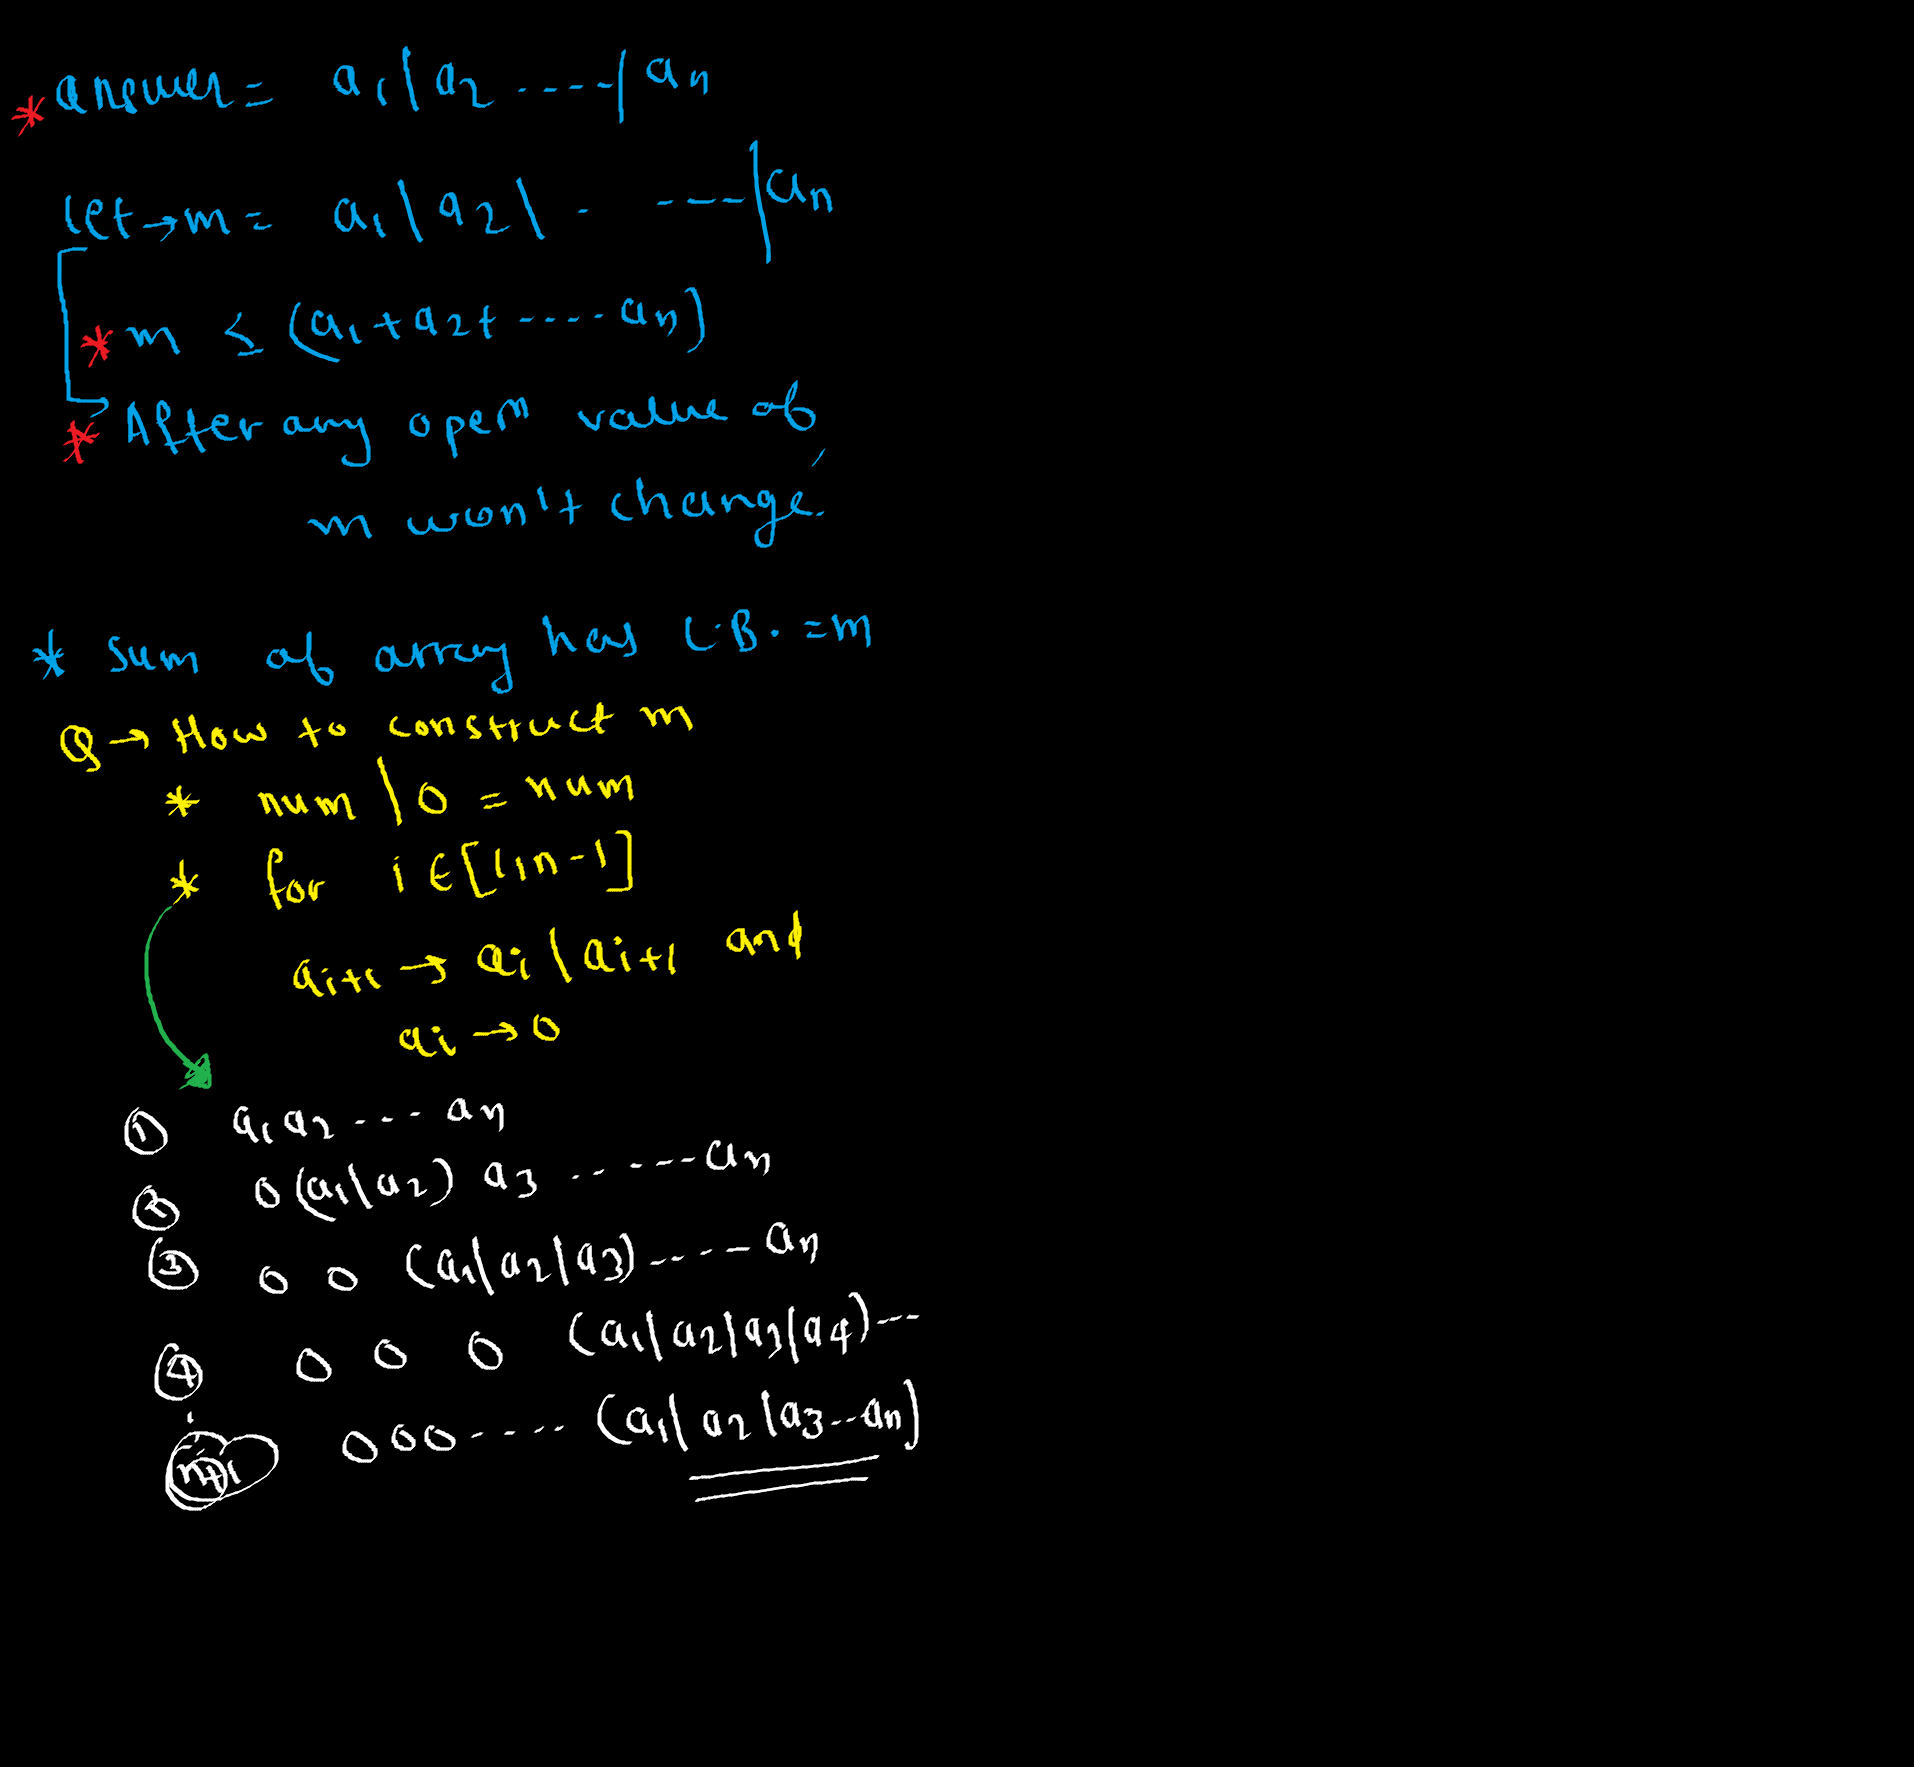 * answer = a1 | a2 ----| an
let → m = a1 | a2 | . ---- | an
* m ≤ (a1 + a2 + ---- an)
* After any opern value of
m won't change.
* Sum of array has L.B. = m
Q → How to construct m
* num | 0 = num
* for i ∈ [1, n-1]
ai+1 → ai | ai+1 and
ai → 0
① a1 a2 --- an
② 0 (a1 | a2) a3 ------ an
③ 0 0 (a1 | a2 | a3) ----- an
④ 0 0 0 (a1 | a2 | a3 | a4) ---
0 0 0 ---- (a1 | a2 | a3 -- an)